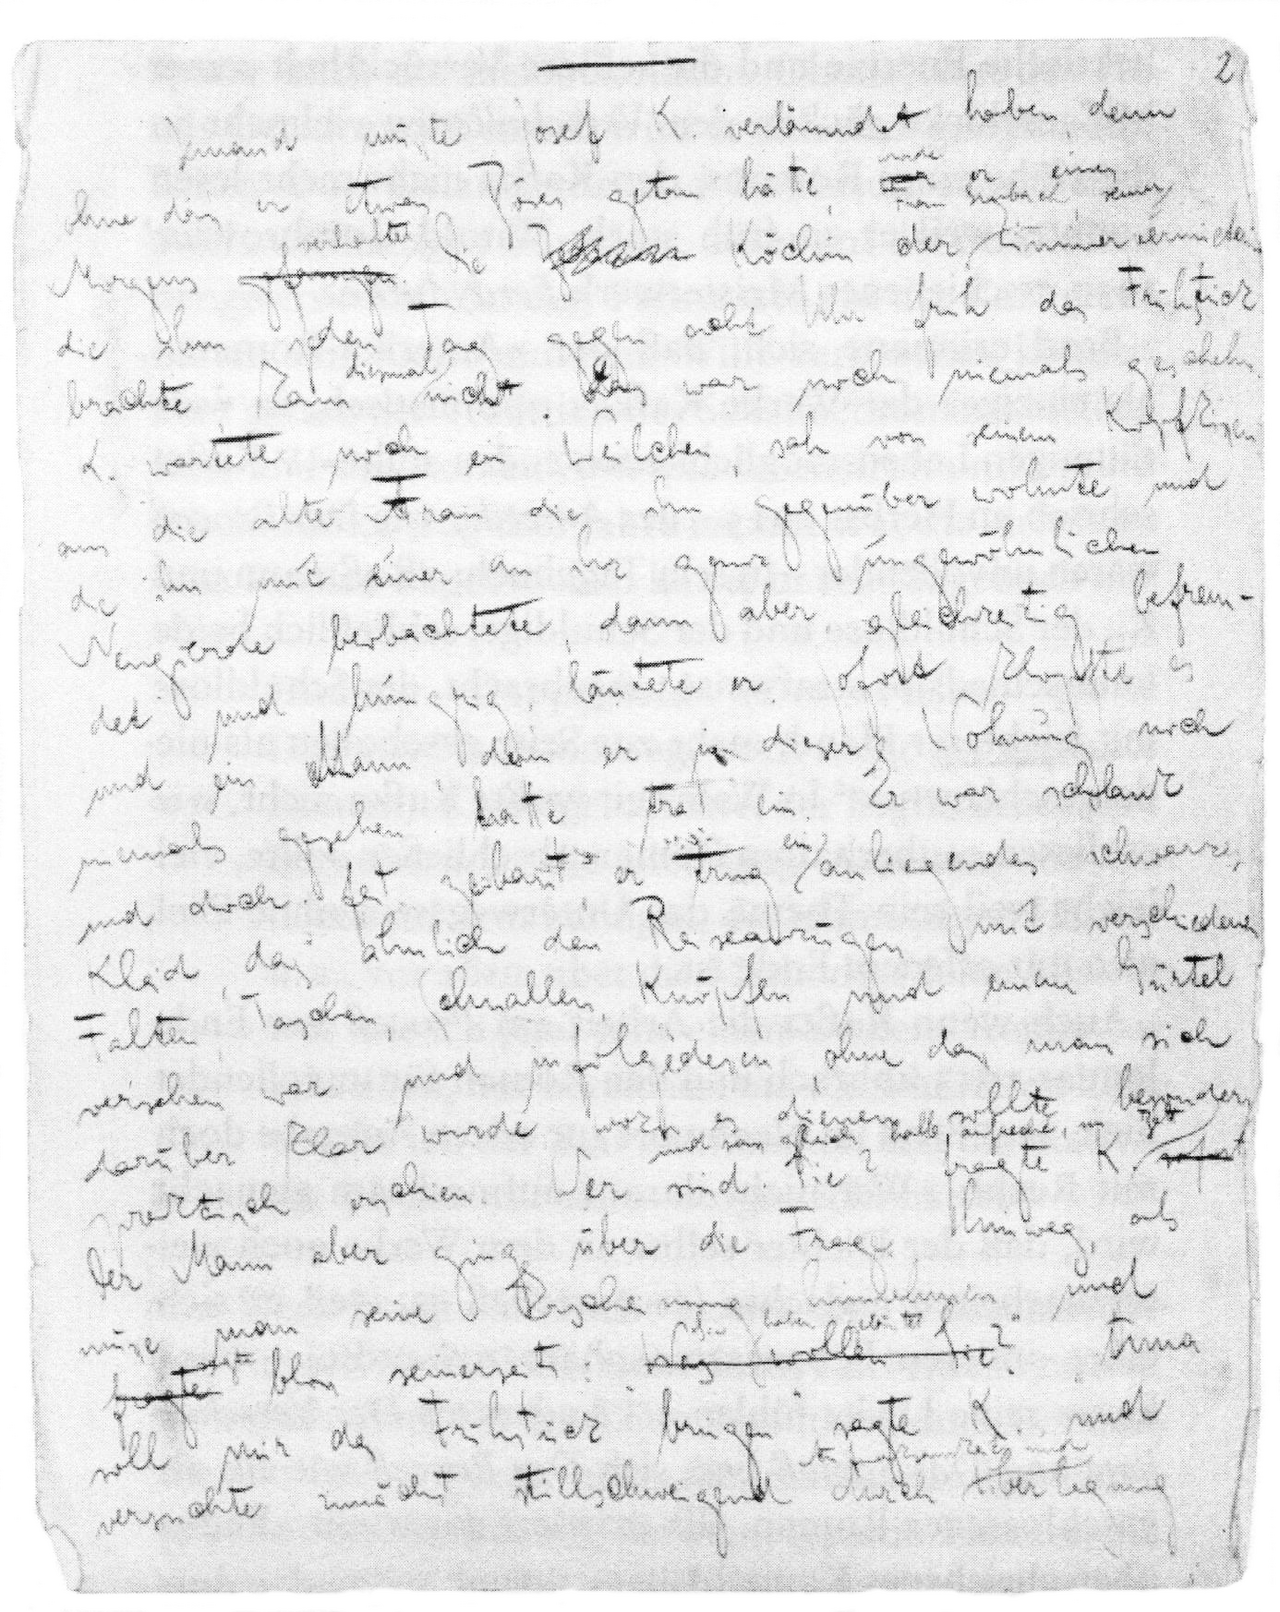 2
Jemand mußte Josef K. verläumdet haben, denn
ohne daß er etwas Böses getan hätte, war wurde er eines
Morgens gefangen verhaftet. Die Köchin der Zimmervermieterin, Frau Grubach, seiner
die ihm jeden Tag gegen acht Uhr früh das Frühstück
brachte kam diesmal nicht. Das war noch niemals geschehn.
K. wartete noch ein Weilchen, sah von seinem Kopfkissen
aus die alte Frau die ihm gegenüber wohnte und
die ihn mit einer an ihr ganz ungewöhnlichen
Neugierde beobachtete, dann aber, gleichzeitig befrem-
det und hungrig, läutete er. Sofort klopfte es
und ein Mann, den er in dieser Wohnung noch
niemals gesehen hatte trat ein. Er war schlank
und doch fest gebaut, er trug ein anliegendes schwarzes
Kleid, das ähnlich den Reiseanzügen mit verschiedenen
Falten, Taschen, Schnallen, Knöpfen und einem Gürtel
versehen war und infolgedessen, ohne daß man sich
darüber klar wurde, wozu es dienen sollte, besonders
praktisch erschien. Wer sind Sie? fragte K. sofort und saß gleich halb aufrecht im Bett
Der Mann aber ging über die Frage hinweg, als
müsse man seine Erscheinung hinnehmen und
fragte sagte bloß seinerseits: Was wollen Sie? Sie haben geläutet? Anna
soll mir das Frühstück bringen sagte K. und
versuchte zunächst stillschweigend durch Aufmerksamkeit und Überlegung